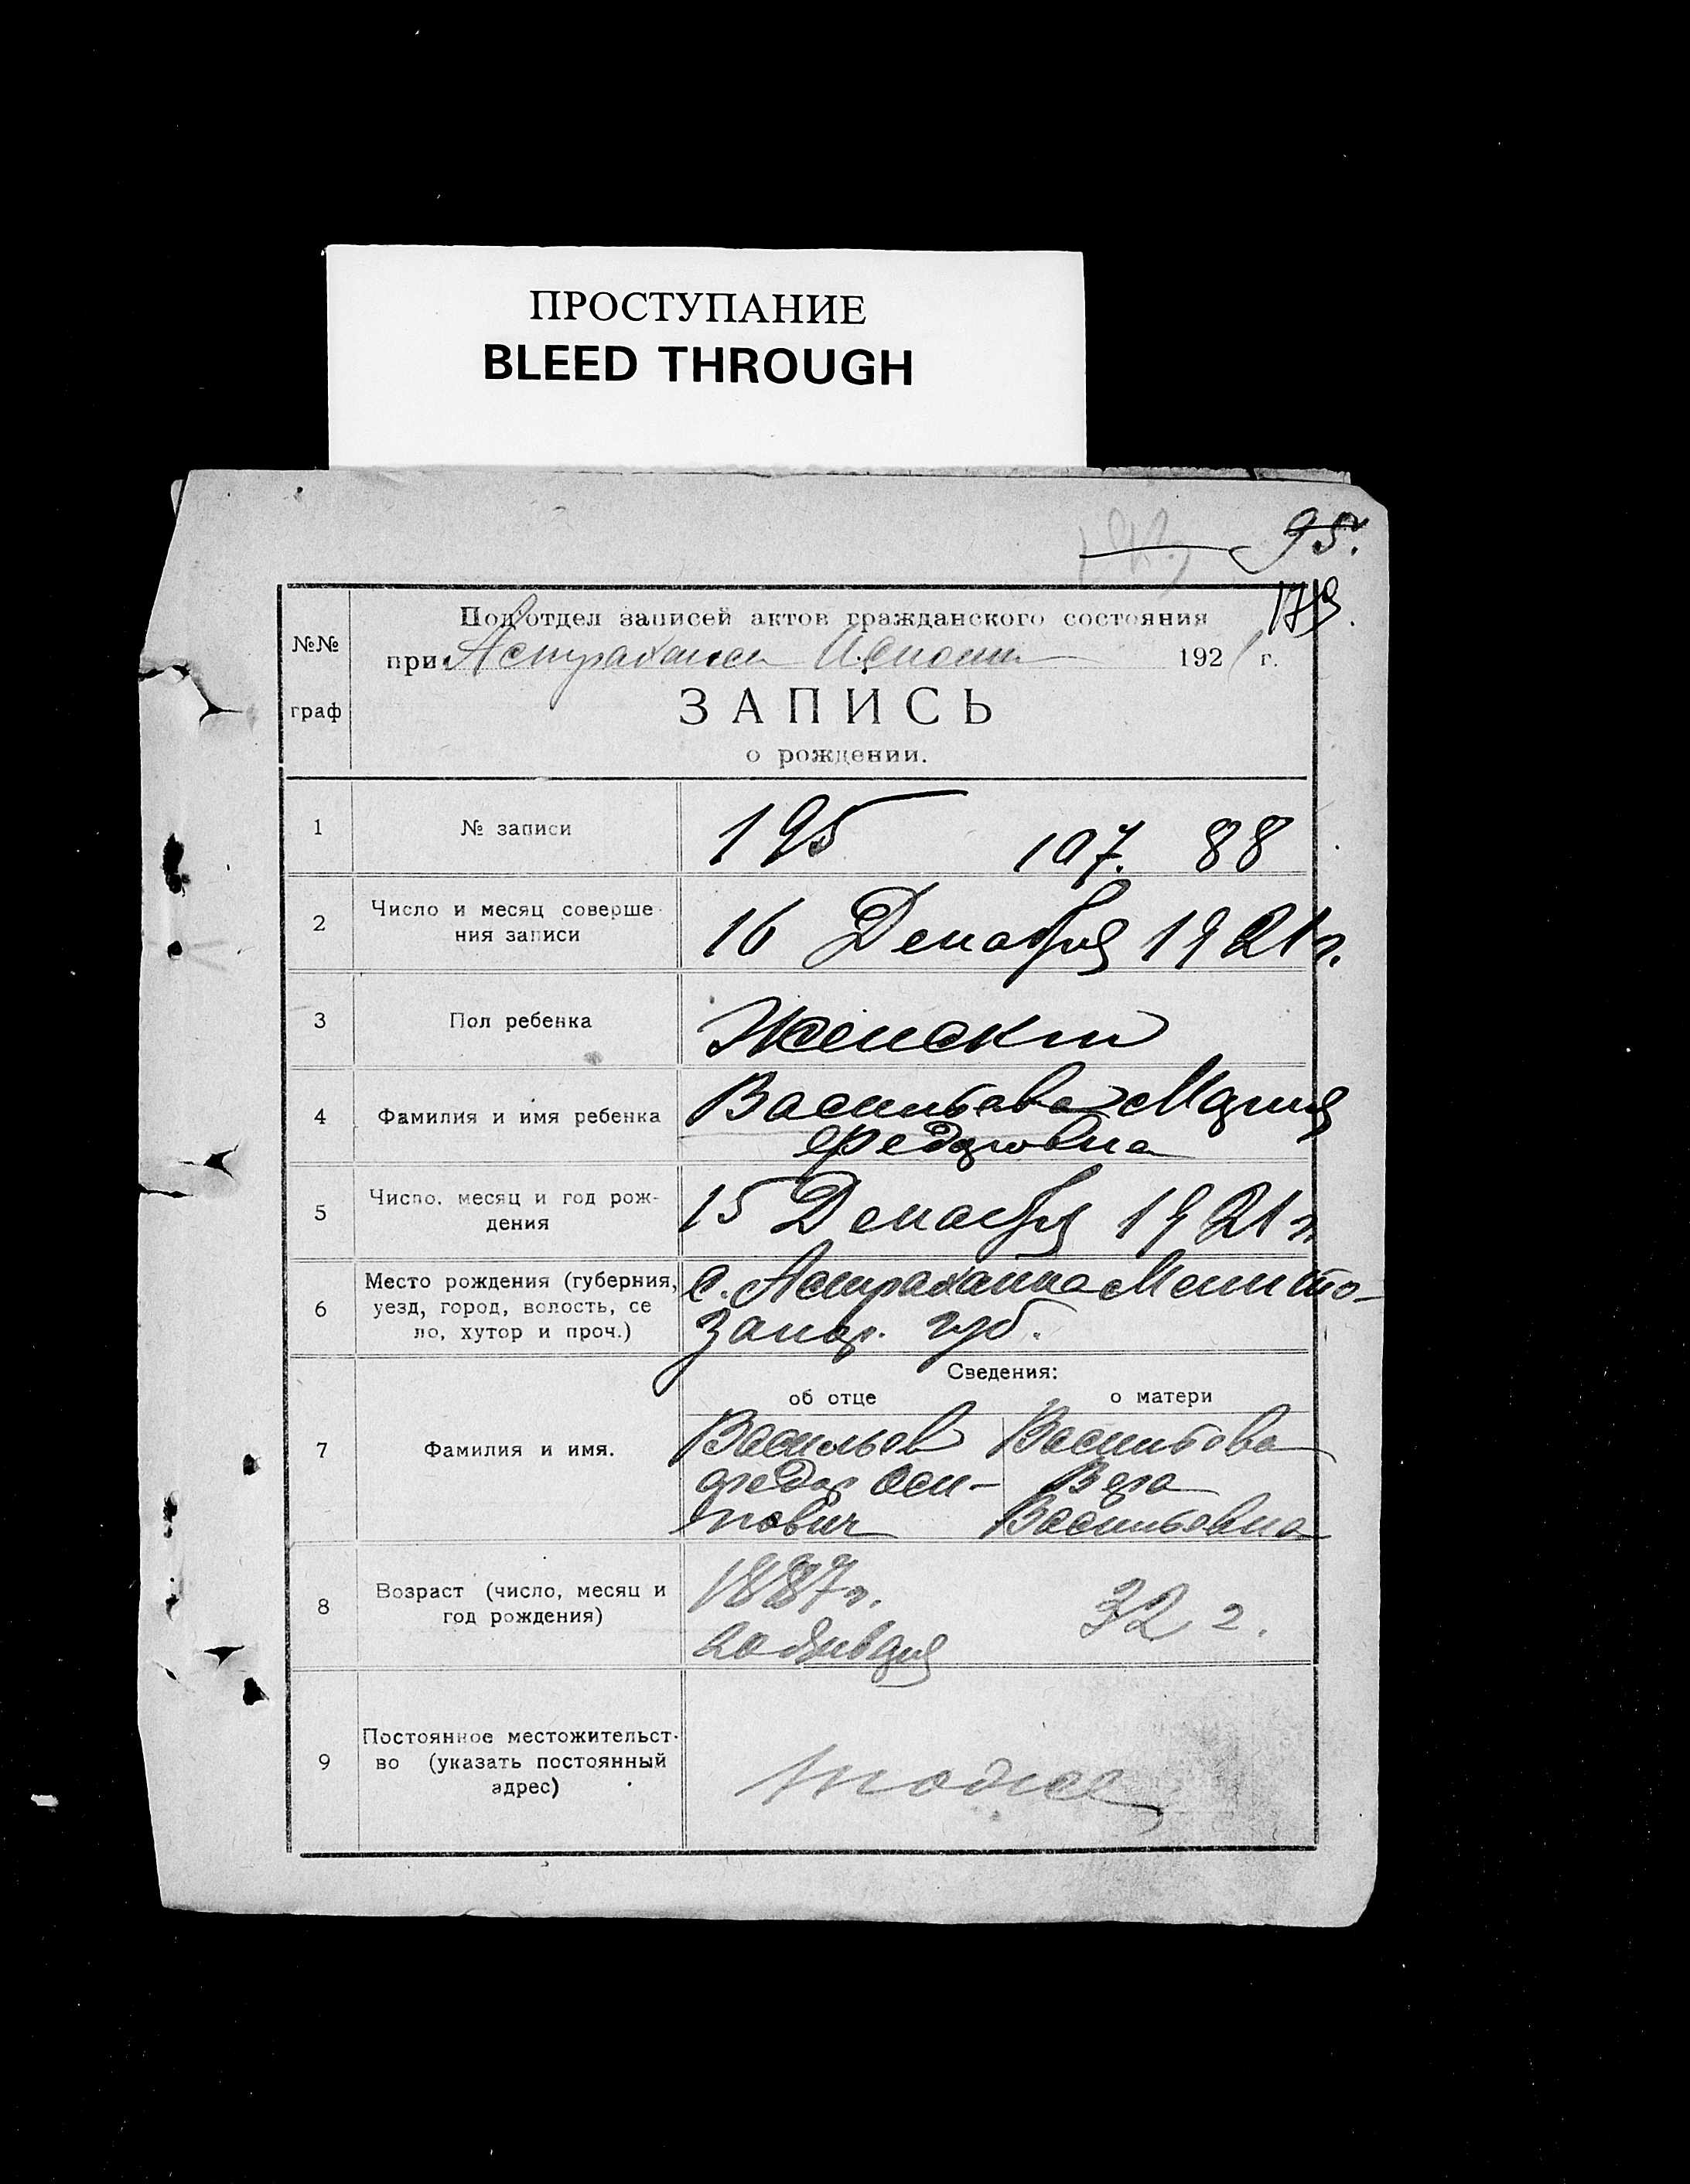 ПРОСТУПАНИЕ
BLEED THROUGH
95.
179.
№№
граф
Под'отдел записей актов гражданского состояния
при 1921 г.
ЗАПИСЬ
о рождении.
1
№ записи
195 107. 88
2
Число и месяц соверше-
ния записи
16 Декабря 1921 г.
3
Пол ребенка
Женский
4
Фамилия и имя ребенка
Васильева Мария
Федоровна
5
Число, месяц и год рож-
дения
15 Декабря 1921 г.
6
Место рождения (губерния,
уезд, город, волость, се
ло, хутор и проч.)
с. Астраханка Мелито-
Запор. губ.
Сведения:
об отце
о матери
7
Фамилия и имя.
Васильев
Федор Оси-
пович
Васильева
Вера
Васильевна
8
Возраст (число, месяц и
год рождения)
1887 г.
32 г.
9
Постоянное местожительст-
во (указать постоянный
адрес)
тоже